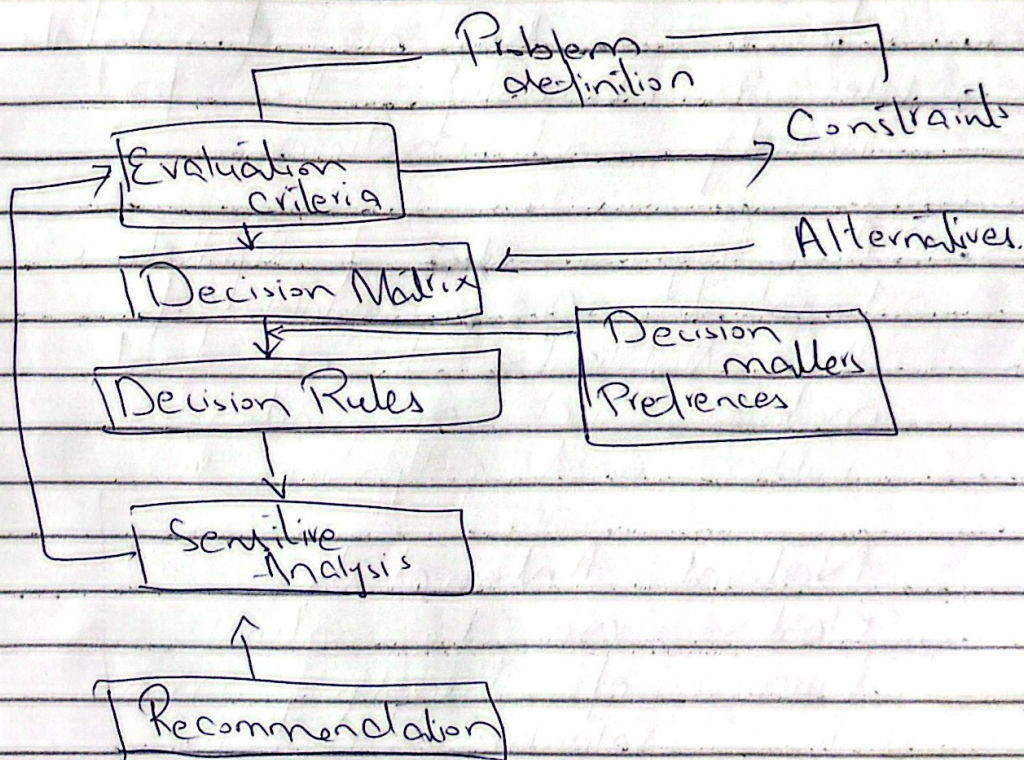 Problem
definition
Constraints
Evaluation
criteria
Alternatives.
Decision Matrix
Decision
mallers
Prefrences
Decision Rules
Sensitive
Analysis
Recommendation